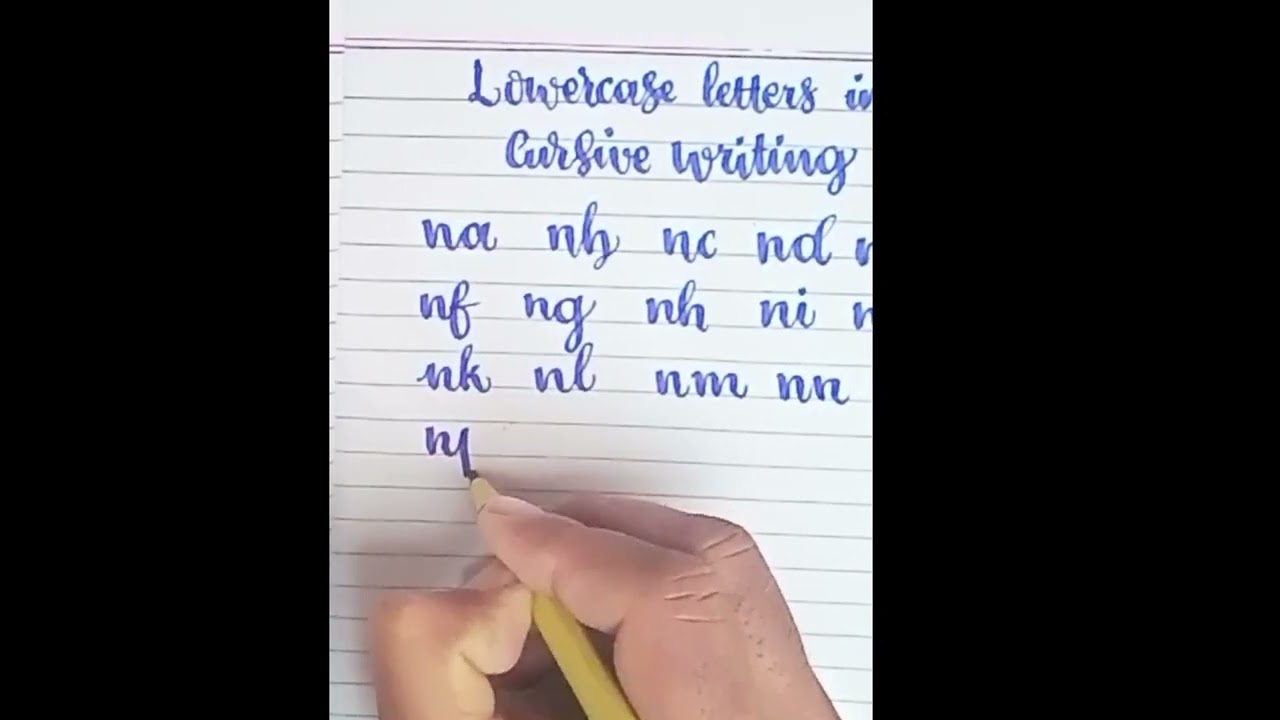 Lowercase letters in
Cursive writing
na nb nc nd n
nf ng nh ni n
nk nl nm nn